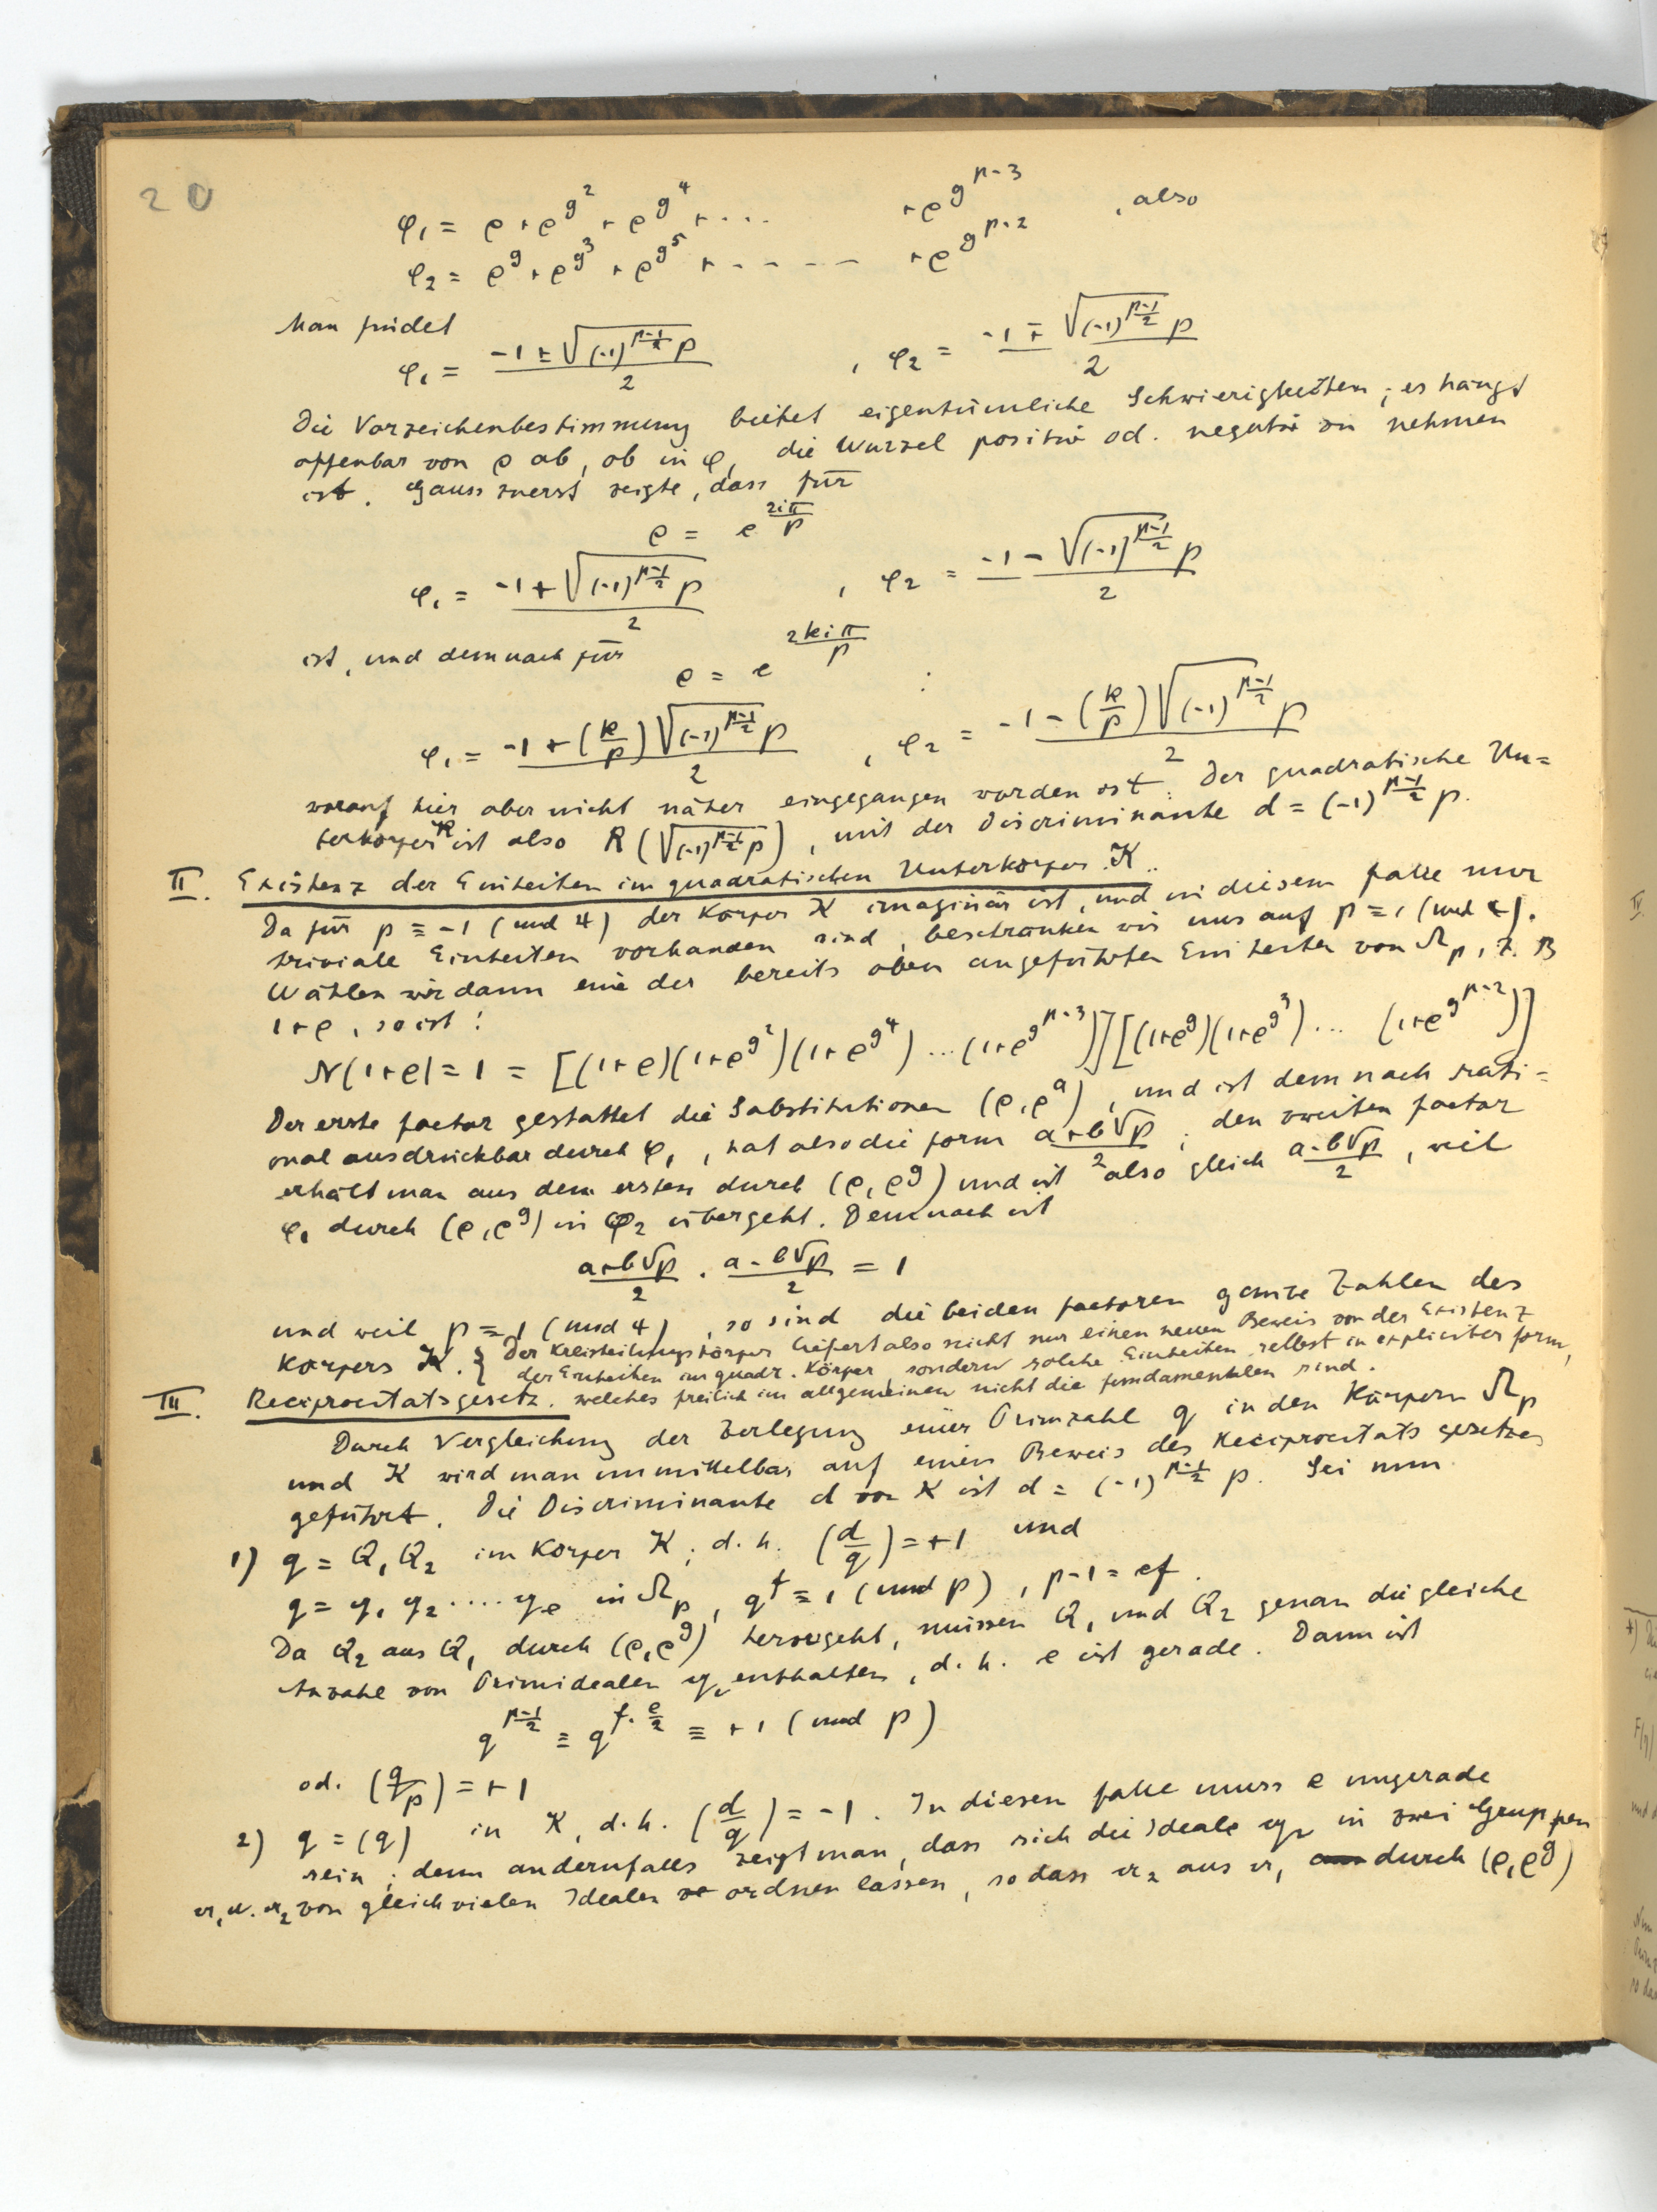 20
φ₁ = ρ + ρ^{g^2} + ρ^{g^4} + ... + ρ^{g^{p-3}} , also
φ₂ = ρ^g + ρ^{g^3} + ρ^{g^5} + - - - - + ρ^{g^{p-2}}
Man findet
φ₁ = (-1 ± √((-1)^{(p-1)/2} p))/2 , φ₂ = (-1 ∓ √((-1)^{(p-1)/2} p))/2
Die Vorzeichenbestimmung bietet eigentümliche Schwierigkeiten; es hängt
offenbar von ρ ab, ob in φ₁ die Wurzel positiv od. negativ zu nehmen
ist. Gauss zuerst zeigte, dass für
ρ = e^{2iπ/p}
φ₁ = (-1 + √((-1)^{(p-1)/2} p))/2 , φ₂ = (-1 - √((-1)^{(p-1)/2} p))/2
ist, und demnach für
ρ = e^{2kiπ/p} :
φ₁ = (-1 + (k/p) √((-1)^{(p-1)/2} p))/2 , φ₂ = (-1 - (k/p) √((-1)^{(p-1)/2} p))/2
worauf hier aber nicht näher eingegangen worden ist. Der quadratische Un=
terkörper K ist also R(√((-1)^{(p-1)/2} p)), mit der Discriminante d = (-1)^{(p-1)/2} p.
II. Existenz der Einheiten im quadratischen Unterkörper K.
Da für p ≡ -1 (mod 4) der Körper K imaginär ist, und in diesem Falle nur
triviale Einheiten vorhanden sind, beschränken wir uns auf p ≡ 1 (mod 4).
Wählen wir dann eine der bereits oben angeführten Einheiten von Ω_p, z. B
1+ρ, so ist:
N(1+ρ) = 1 = [(1+ρ)(1+ρ^{g^2})(1+ρ^{g^4}) ... (1+ρ^{g^{p-3}})][(1+ρ^g)(1+ρ^{g^3}) ... (1+ρ^{g^{p-2}})]
Der erste Factor gestattet die Substitutionen (ρ, ρ^a), und ist demnach rati=
onal ausdrückbar durch φ₁, hat also die Form (a+b√p)/2; den zweiten Factor
erhält man aus dem ersten durch (ρ, ρ^g) und ist also gleich (a-b√p)/2, weil
φ₁ durch (ρ, ρ^g) in φ₂ übergeht. Demnach ist
(a+b√p)/2 · (a-b√p)/2 = 1
und weil p ≡ 1 (mod 4), so sind die beiden Factoren ganze Zahlen des
Körpers K. { Der Kreisteilungskörper liefert also nicht nur einen neuen Beweis von der Existenz
der Einheiten im quadr. Körper, sondern solche Einheiten selbst in expliciter Form,
III. Reciprocitätsgesetz. welches freilich im allgemeinen nicht die fundamentalen sind.
Durch Vergleichung der Zerlegung einer Primzahl q in den Körpern Ω_p
und K wird man unmittelbar auf einen Beweis des Reciprocitätsgesetzes
geführt. Die Discriminante d von K ist d = (-1)^{(p-1)/2} p. Sei nun
1) q = Q₁ Q₂ im Körper K; d. h. (d/q) = +1 und
q = 𝔮₁ 𝔮₂ .... 𝔮_e in Ω_p, q^f ≡ 1 (mod p), p-1 = ef.
Da Q₂ aus Q₁ durch (ρ, ρ^g) hervorgeht, müssen Q₁ und Q₂ genau die gleiche
Anzahl von Primidealen 𝔮ᵢ enthalten, d. h. e ist gerade. Dann ist
q^{(p-1)/2} ≡ q^{f·e/2} ≡ +1 (mod p)
od. (q/p) = +1
2) q = (q) in K, d. h. (d/q) = -1. In diesem Falle muss e ungerade
sein; denn andernfalls zeigt man, dass sich die Ideale 𝔮ᵢ in zwei Gruppen
𝔞₁ u. 𝔞₂ von gleichvielen Idealen ordnen lassen, so dass 𝔞₂ aus 𝔞₁ durch (ρ, ρ^g)